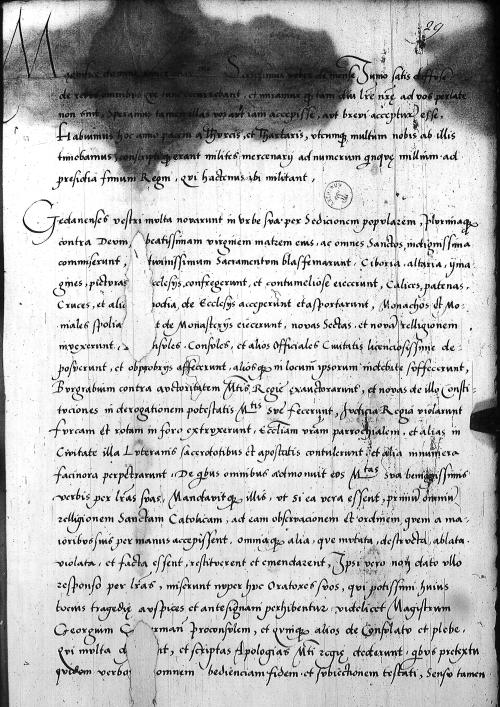 29
Magnifice domine amice Scripsimus vobis de mense Junio satis diffuse
de rebus omnibus que tunc currebant, et miramur q tam diu lre nre ad vos perlate
non sint, Speramus tamen illas vos aut iam accepisse, aut brevi accepturos esse.
Habuimus hoc anno pacem a Thurcis, et Thartaris, utcunq multum nobis ab illis
timebamus, conscriptiq erant milites mercenarij ad numerum quinq millium ad
presidia finium Regni, qui hactenus ibi militant,
Gedanenses vestri multa novarunt in urbe sua per Sedicionem popularem, Plurimaq
contra Deum, beatissimam virginem matrem eius, ac omnes Sanctos, indignissima
commiserunt, divinissimum Sacramentum blasfemarunt, Ciboria, altaria, ijma
gines, picturas ecclesijs, confregerunt, et contumeliose eiecerunt, Calices, patenas,
Cruces, et alia podia, de Ecclesijs acceperunt et asportarunt, Monachos et Mo
niales spolia t de Monasterijs eiecerunt, novas Sectas, et novam relligionem
invexerunt, nsules, Consules, et alios Officiales Civitatis licenciosissime de
posuerunt, et obprobrijs affecerunt, aliosq in locum ipsorum indebite suffecerunt,
Burgrabium contra auctoritatem Mtis Regie exauctorarunt, et novas de illo Consti
tuciones in derogationem potestatis Mtis sue fecerunt, Judicia Regia violarunt
furcam et rotam in foro extruxerunt, Ecctiam vram parrochialem, et alias in
Civitate illa Luteranis sacerdotibus et apostatis contulerunt, et alia innumera
facinora perpetrarunt, De qbus omnibus admonuit eos Mtas sua benignissimis
verbis per lras suas, Mandavitq illis, ut si ea vera essent, primum omnium
relligionem Sanctam Catolicam, ad eam observacionem et ordinem quem a ma
ioribus suis per manus accepissent, omniaq alia, que mutata, destructa, ablata
violata, et facta essent, restituerent et emendarent, Ipsi vero non dato ullo
responso per lras, miserunt nuper huc Oratores suos, qui potissimi huius
tocius tragedie auspices et antesignani perhibentur, videlicet Magistrum
Georgium rman Proconsulem, et quinq alios de Consulatu et plebe,
Qui multa d nt, et scriptas Apologias Mti regie dederunt, qbus pretextu
quodam verbo omnem bedienciam fidem et subiectionem testati, Sensu tamen